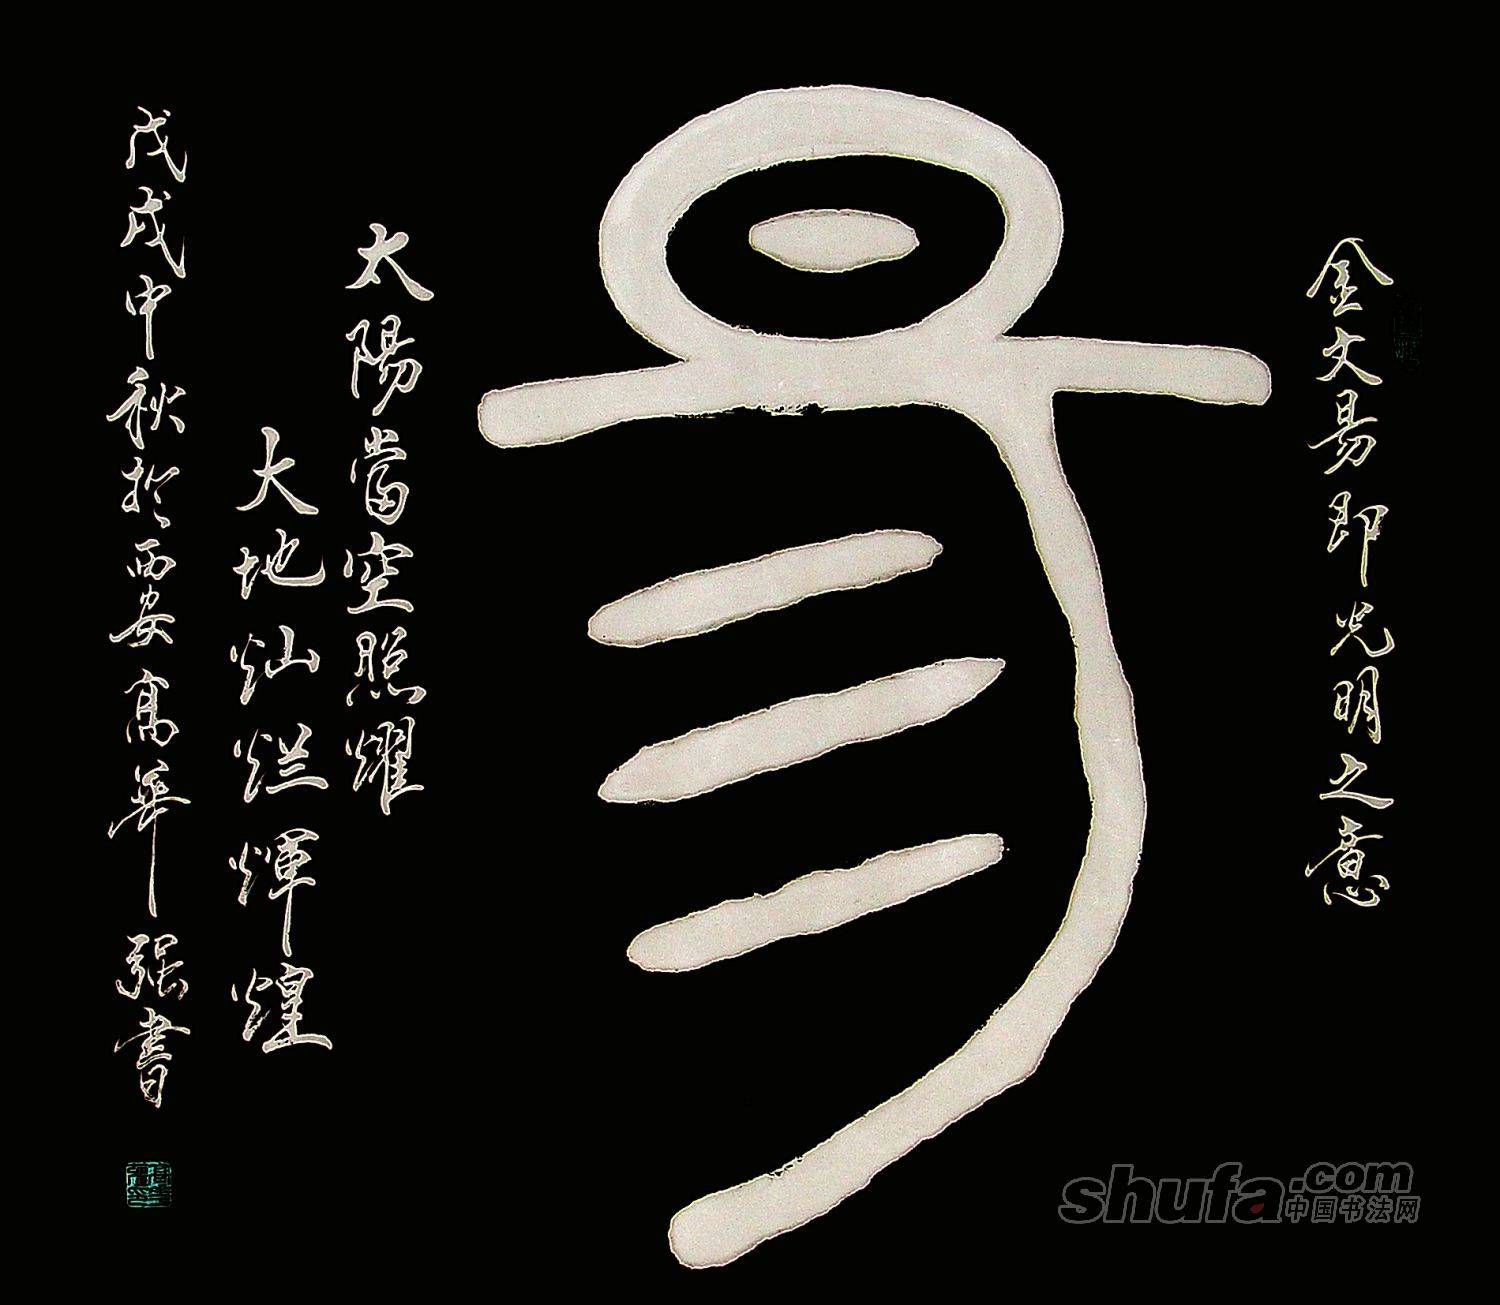 金文昜即光明之意
昜
太陽當空照耀
大地灿烂輝煌
戊戌中秋於西安高華强書
shufa.com
中国书法网